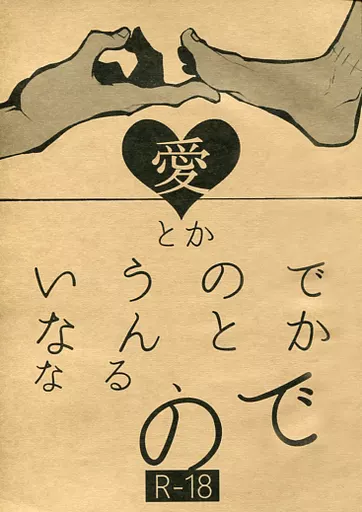 愛
とか
いうので
なんとか
なる、ので
R-18